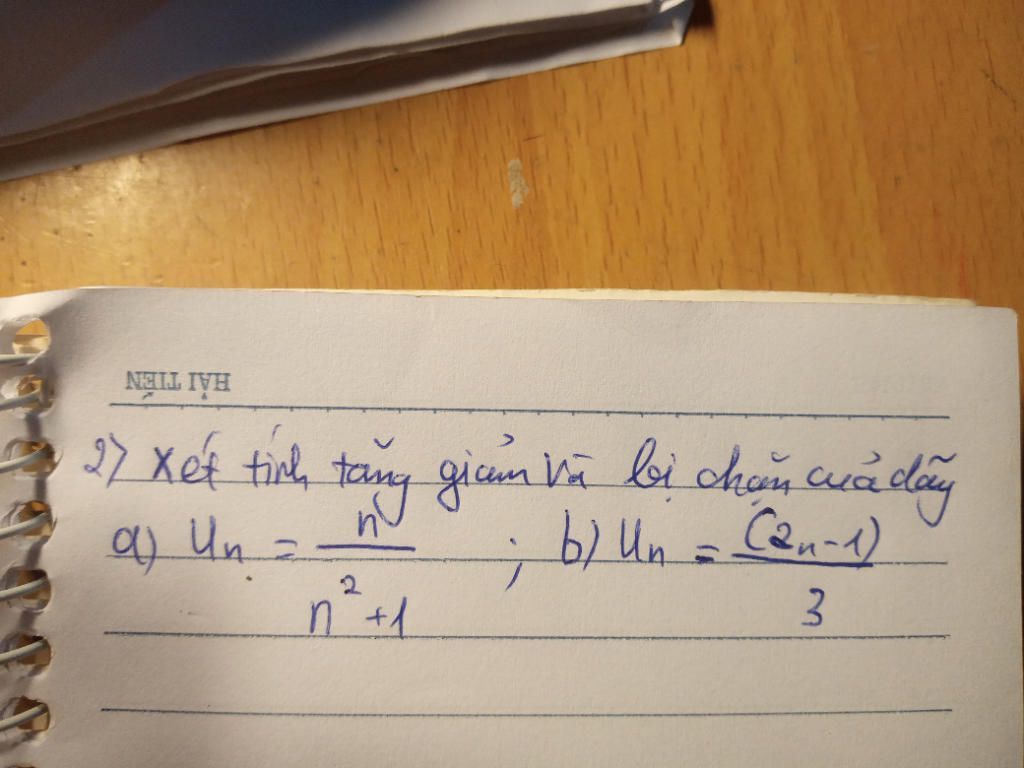 HẢI TIẾN
2) Xét tính tăng giảm và bị chặn của dãy
a) Un = n / n² + 1 ; b) Un = (2n - 1) / 3